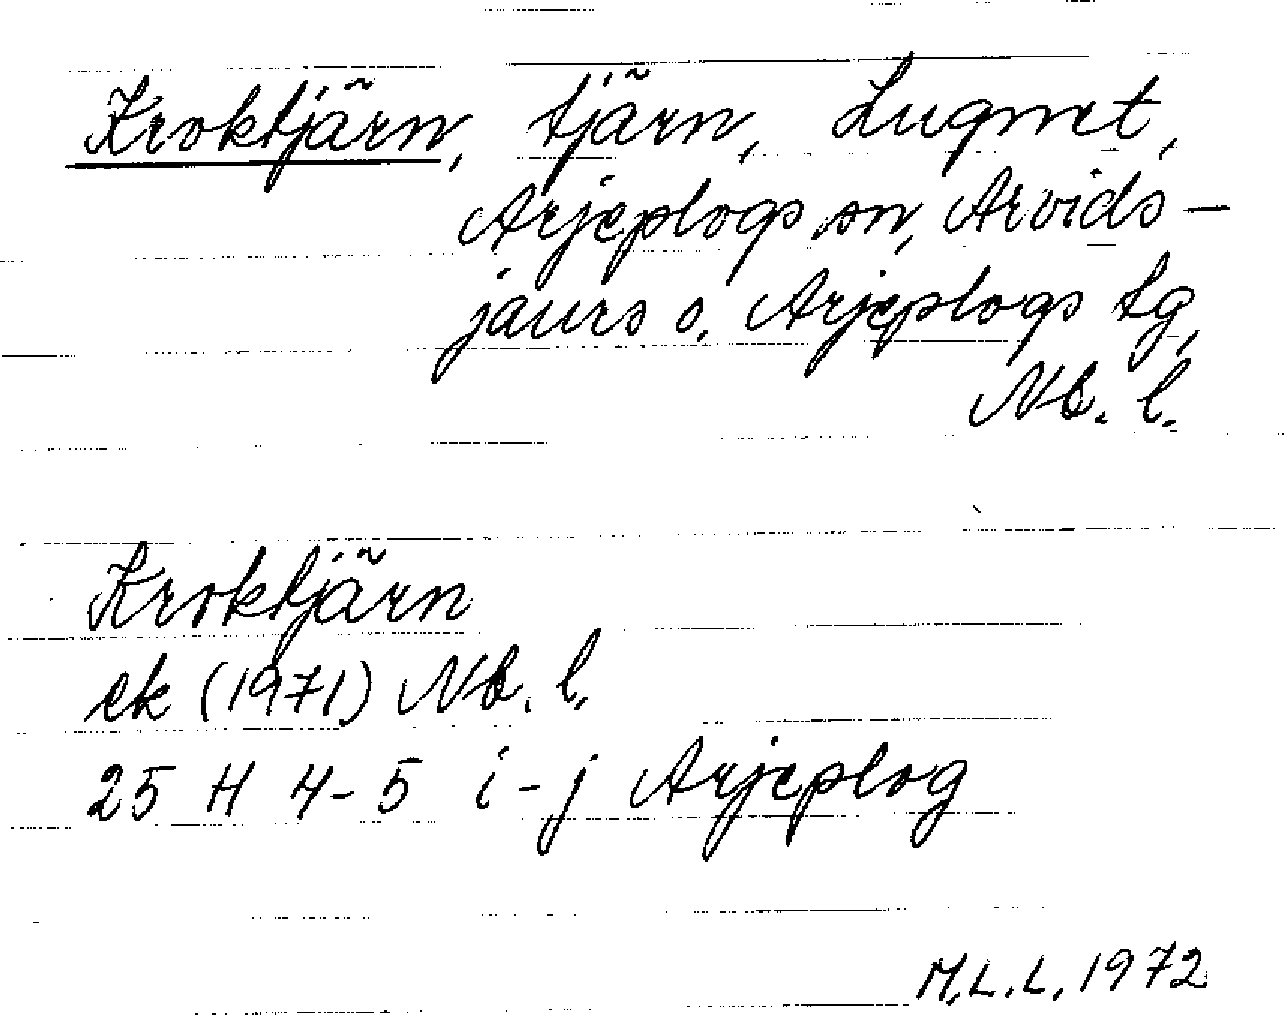 Kroktjärn, tjärn, Lugnet,
Arjeplogs sn, Arvids-
jaurs o. Arjeplogs tg,
Nb. l.
Kroktjärn
ek (1971) Nb. l.
25 H 4-5 i-j Arjeplog
M.L.L. 1972